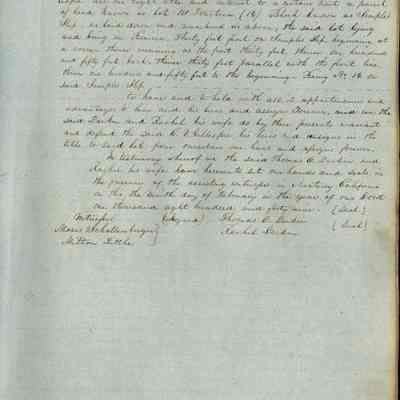 right title and interest to a certain lot or parcel
of land known as Lot No. Fourteen (14) Block known as Semples
Slip, as laid down and numbered as above, the said lot lying
and being in Thirty feet front on Semples Slip beginning at
a corner thence running on the front thirty feet, thence one hundred
and fifty feet back, thence thirty feet parallel with the front line,
thence one hundred and fifty feet to the beginning. Being No. 14 on
said Semples Slip
to have and to hold with all it appertainances and
advantages to him and his heirs and assigns forever, and we the
said and Rachel his wife do by these presents warrant
and defend the said C V Gillespie his heirs and assigns in the
title to said lot from ourselves our heirs and assigns forever.
In testimony whereof we the said Thomas and
Rachel his wife have hereunto set our hands and seals in
the presence of the assisting witnesses in Monterey California
on this the tenth day of February in the year of our Lord
one thousand eight hundred and forty nine. (Seal)
Witnesses (Signed) Thomas (Seal)
Moses Schallenberger
Rachel
Milton Little